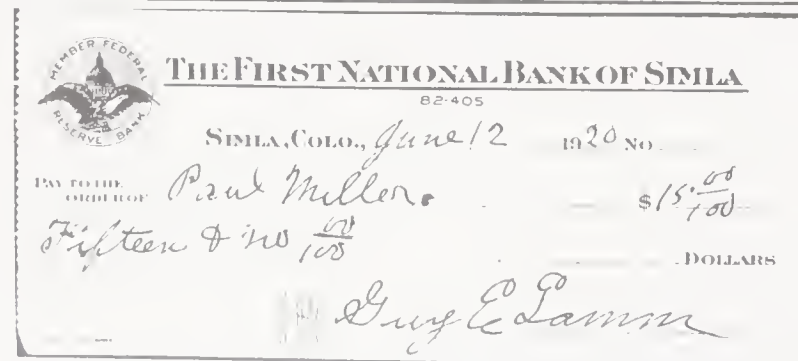 MEMBER FEDERAL RESERVE BANK
THE FIRST NATIONAL BANK OF SIMLA
82-405
SIMLA, COLO., June 12 1920 NO.
PAY TO THE
ORDER OF Paul Miller. $15.00/100
Fifteen & no 00/100 DOLLARS
Guy E Lamm